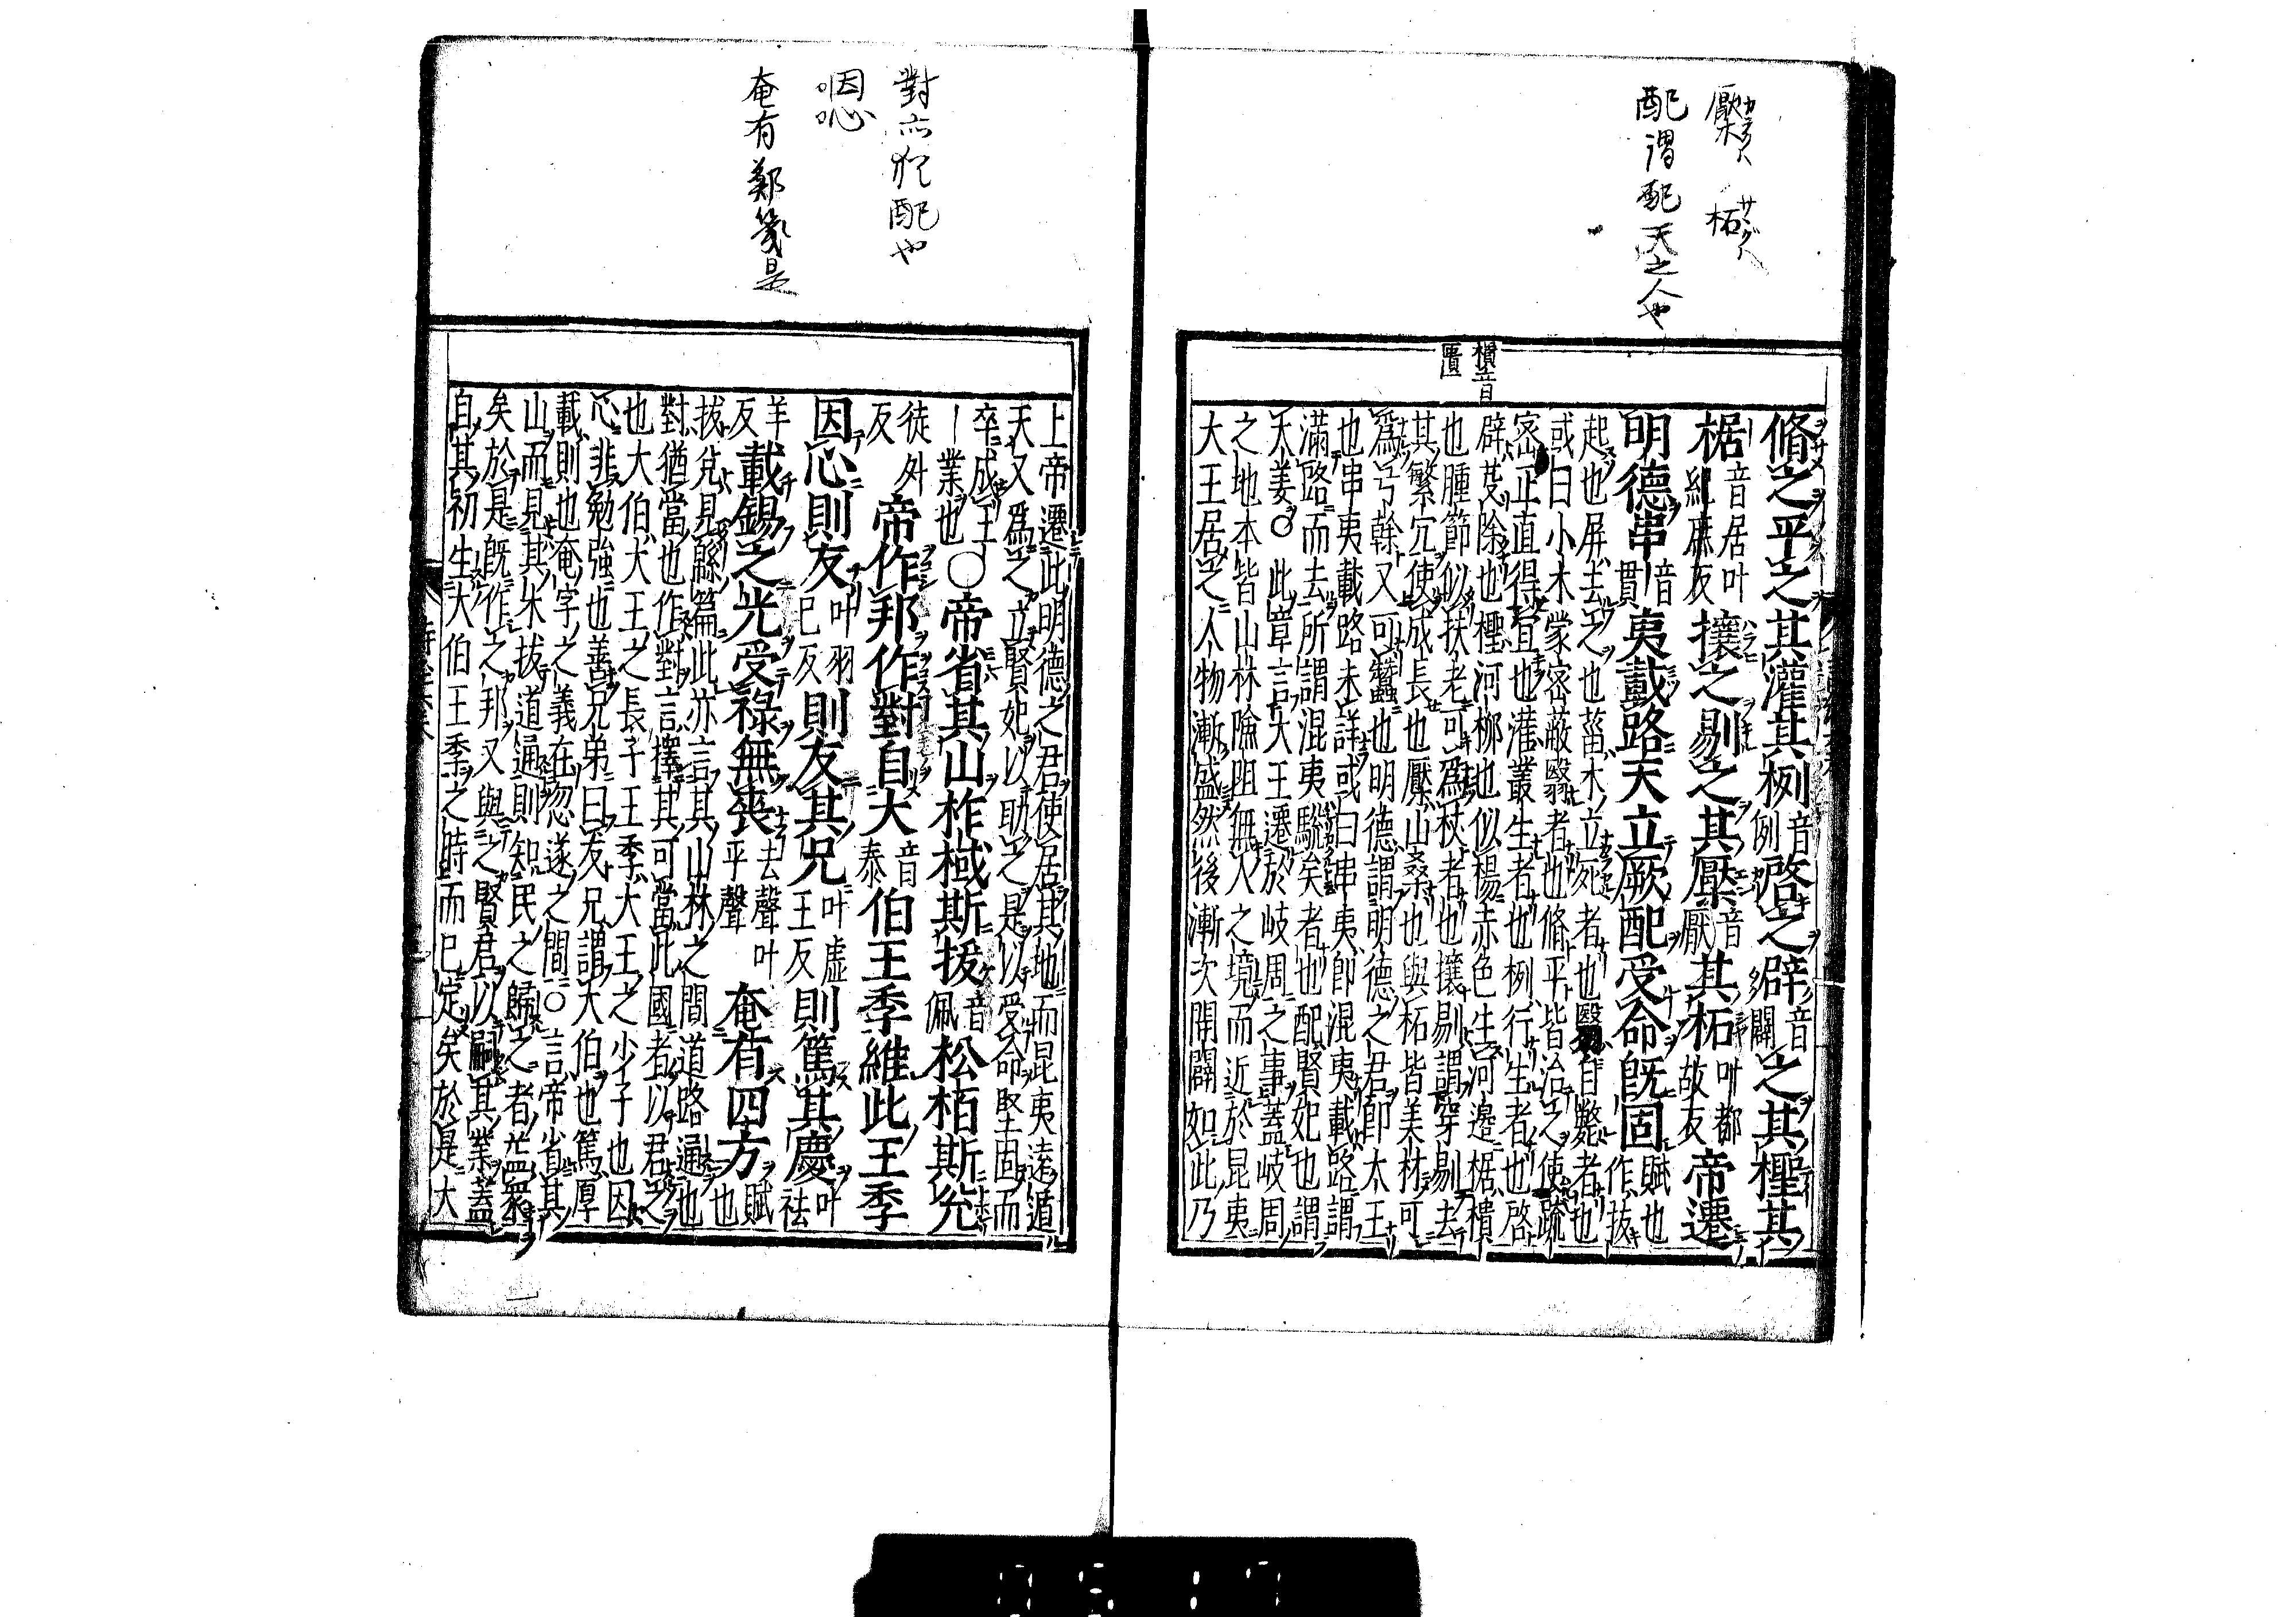 檿 柘
配謂配天之人也
樻音
匱
脩之平之其灌其栵音例啓之辟音闢之其檉其
椐音居叶紀庶反攘之剔之其檿音厭其柘叶都故反帝遷
明德串音貫夷載路天立厥配受命旣固賦也作拔
起也屏去之也菑木立死者也翳自斃者也
或曰小木蒙密蔽翳者也脩平皆治之使疏
密正直得宜也灌叢生者也栵行生者也啓
辟芟除也檉河柳也似楊赤色生河邊椐樻
也腫節似扶老可爲杖者也攘剔謂穿剔去
其繁冗使成長也檿山桑也與柘皆美材可
爲弓榦又可蠶也明德謂明德之君卽太王
也串夷載路未詳或曰串夷卽混夷載路謂
滿路而去所謂混夷駾矣者也配賢妃也謂
太姜○此章言大王遷於岐周之事蓋岐周
之地本皆山林險阻無人之境而近於昆夷
大王居之人物漸盛然後漸次開闢如此乃
對亦犯配也
咽
奄有鄭箋是
上帝遷此明德之君使居其地而昆夷遠遁
天又爲之立賢妃以助之是以受命堅固而
卒成王業也○帝省其山柞棫斯拔音佩松栢斯兊
徒外反帝作邦作對自大音泰伯王季維此王季
因心則友叶羽已反則友其兄叶虛王反則篤其慶叶祛
羊反載錫之光受祿無喪去聲叶平聲奄有四方賦也
拔兊見緜篇此亦言其山林之間道路通也
對猶當也作對言擇其可當此國者以君之
也大伯大王之長子王季大王之少子也因
心非勉強也善兄弟曰友兄謂大伯也篤厚
載則也奄字之義在忽遂之間○言帝省其
山而見其木拔道通則知民之歸之者益衆
矣於是旣作之邦又與之賢君以嗣其業蓋
自其初生大伯王季之時而已定矣於是大